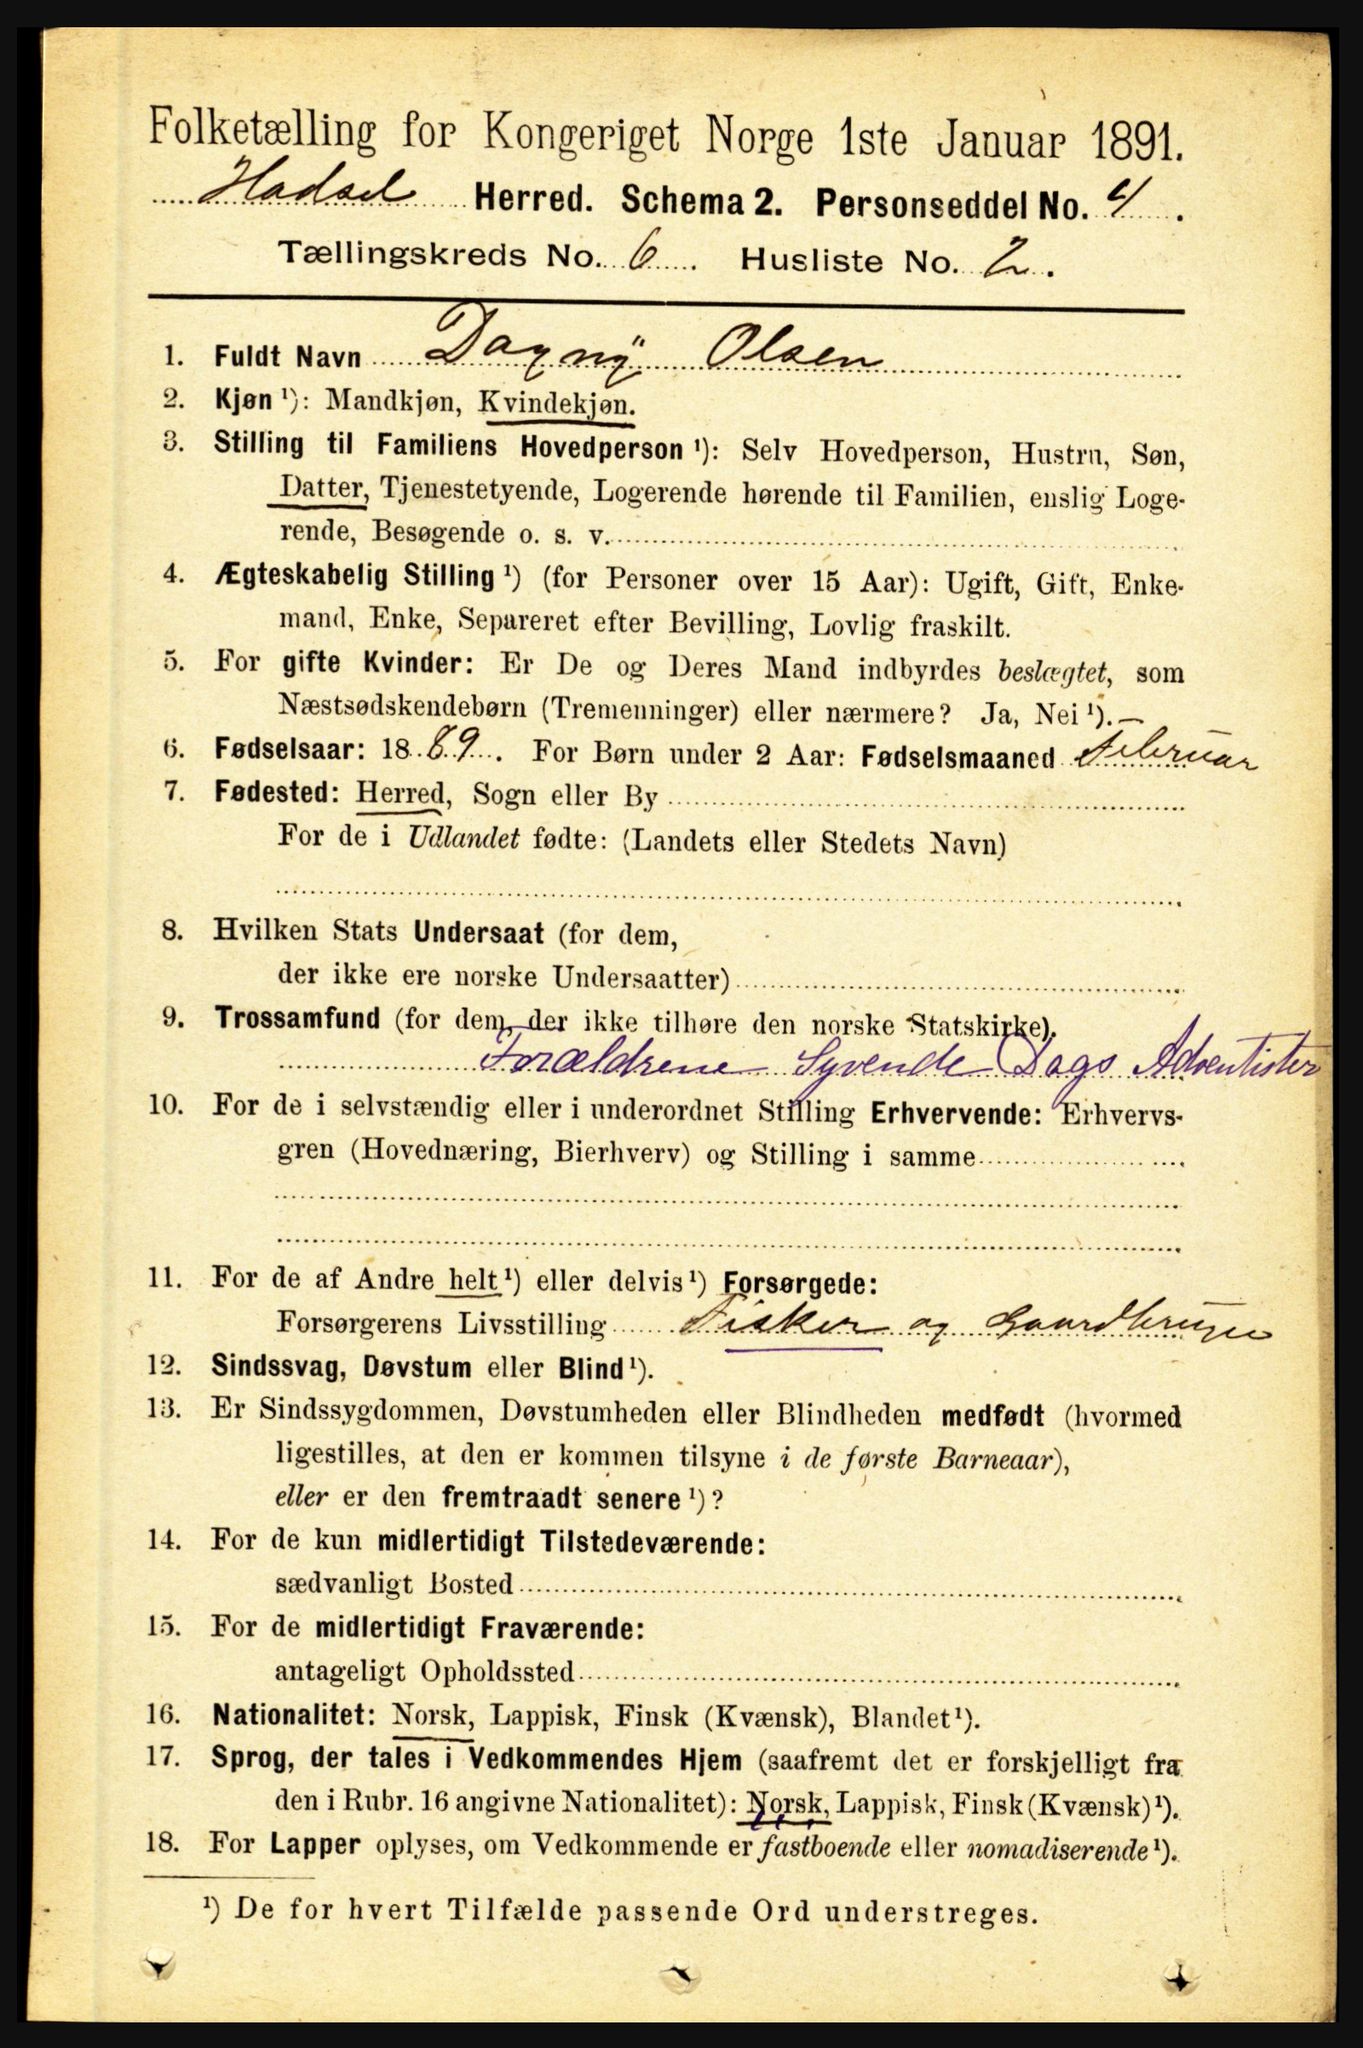 Folketælling for Kongeriget Norge 1ste Januar 1891.
Hadsel Herred. Schema 2. Personseddel No. 4.
Tællingskreds No. 6. Husliste No. 2.
1. Fuldt Navn Dagny Olsen
2. Kjøn ¹): Mandkjøn, Kvindekjøn.
3. Stilling til Familiens Hovedperson ¹): Selv Hovedperson, Hustru, Søn,
Datter, Tjenestetyende, Logerende hørende til Familien, enslig Loge-
rende, Besøgende o. s. v.
4. Ægteskabelig Stilling ¹) (for Personer over 15 Aar): Ugift, Gift, Enke-
mand, Enke, Separeret efter Bevilling, Lovlig fraskilt.
5. For gifte Kvinder: Er De og Deres Mand indbyrdes beslægtet, som
Næstsødskendebørn (Tremenninger) eller nærmere? Ja, Nei ¹).—
6. Fødselsaar: 1889. For Børn under 2 Aar: Fødselsmaaned Februar
7. Fødested: Herred, Sogn eller By
For de i Udlandet fødte: (Landets eller Stedets Navn)
8. Hvilken Stats Undersaat (for dem,
der ikke ere norske Undersaatter)
9. Trossamfund (for dem, der ikke tilhøre den norske Statskirke).
Forældrene Syvende Dags Adventister
10. For de i selvstændig eller i underordnet Stilling Erhvervende: Erhvervs-
gren (Hovednæring, Bierhverv) og Stilling i samme
11. For de af Andre helt ¹) eller delvis ¹) Forsørgede:
Forsørgerens Livsstilling Fisker og Gaardbruger
12. Sindssvag, Døvstum eller Blind ¹).
13. Er Sindssygdommen, Døvstumheden eller Blindheden medfødt (hvormed
ligestilles, at den er kommen tilsyne i de første Barneaar),
eller er den fremtraadt senere ¹)?
14. For de kun midlertidigt Tilstedeværende:
sædvanligt Bosted
15. For de midlertidigt Fraværende:
antageligt Opholdssted
16. Nationalitet: Norsk, Lappisk, Finsk (Kvænsk), Blandet ¹).
17. Sprog, der tales i Vedkommendes Hjem (saafremt det er forskjelligt fra
den i Rubr. 16 angivne Nationalitet): Norsk, Lappisk, Finsk (Kvænsk) ¹).
18. For Lapper oplyses, om Vedkommende er fastboende eller nomadiserende ¹).
¹) De for hvert Tilfælde passende Ord understreges.